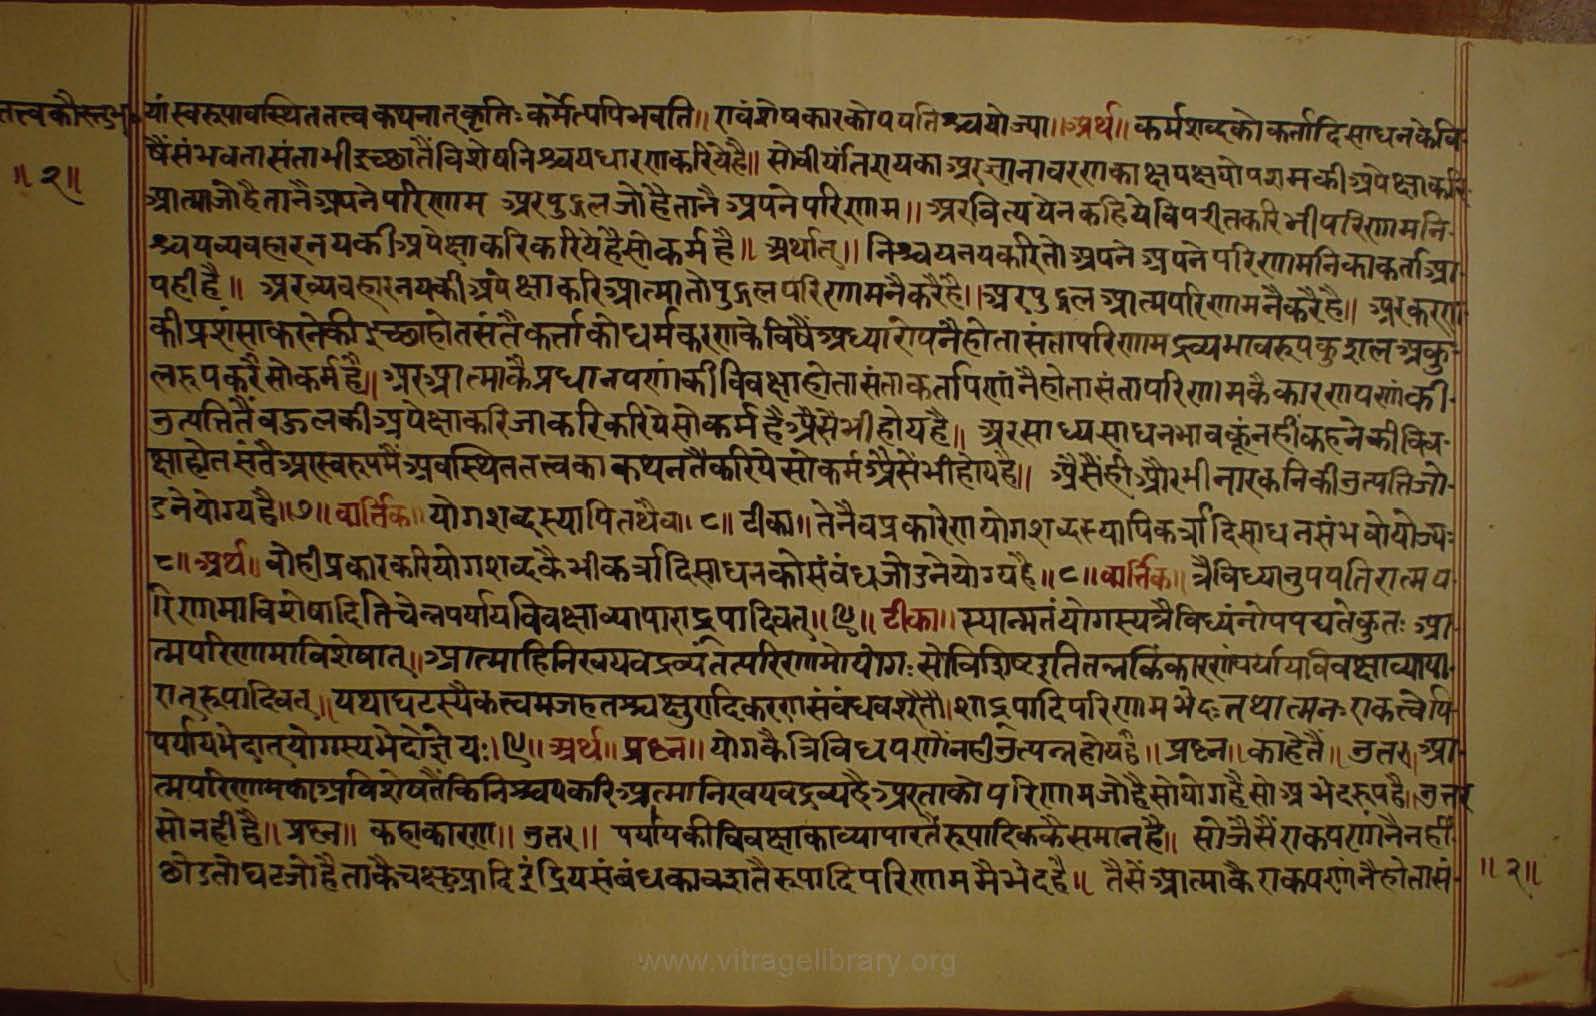 तत्वकौस्तुभ
॥२॥
यां स्वरूपावस्थिततत्वकथनात् कृतिः कर्मेत्यपि भवति॥ एवं शेषकारकोपपतिश्च योज्या॥ अर्थ॥ कर्मशब्दको कर्तादिसाधनके वि-
षैं संभवता संता भी इच्छातैं विशेषनिश्चय धारण करिये है॥ सो वीर्यांतरायका अर ज्ञानावरणका क्षय क्षयोपशमकी अपेक्षा करि
आत्मा जो है तानै अपने परिणाम अर पुद्गल जो है तानै अपने परिणाम॥ अर वित्ययेन कहिये विपरीत करि भी परिणामनि-
श्चयव्यवहारनयकी अपेक्षा करि करिये है सो कर्म है॥ अर्थात्॥ निश्चयनय करि तो अपने अपने परिणामनिका कर्ता आ-
पही है॥ अर व्यवहारनयकी अपेक्षा करि आत्मा तो पुद्गलपरिणामनै करै है॥ अर पुद्गल आत्मपरिणामनै करै है॥ अर करण-
की प्रशंसा करनेकी इच्छा होत संतै कर्ताको धर्म करणके विषैं अध्यारोपनै होता संता परिणाम द्रव्यभावरूप कुशल अकु-
लरूप करै सो कर्म है॥ अर आत्माकै प्रधानपणांकी विवक्षा होता संता कर्तापणांनै होता संता परिणामकै कारणपणांकी-
उत्पत्तितैं बहुलकी अपेक्षा करि जा करि करिये सो कर्म है असै भी होय है॥ अर साध्यसाधनभावकूं नहीं कहनेकी विव-
क्षा होत संतै आ स्वरूपमैं अवस्थित तत्त्वका कथनतैं करिये सो कर्म असैं भी होय है॥ असैं ही और भी नारकनिकी उत्पत्ति जो-
डने योग्य है॥७॥ वार्त्तिक॥ योगशब्दस्यापि तथैव॥८॥ टीका॥ तेनैव प्रकारेण योगशब्दस्यापि कर्त्रादिसाधनसंभवो योज्यः
८॥ अर्थ॥ वोही प्रकार करि योगशब्दकै भी कर्त्रादिसाधनको संबंध जोडने योग्य है॥८॥ वार्त्तिक॥ त्रैविध्यानुपपतिरात्मप-
रिणामाविशेषादिति चेन्न पर्यायविवक्षाव्यापाराद्रूपादिवत्॥९॥ टीका॥ स्यान्मतं योगस्य त्रैविध्यं नोपपद्यते कुतः आ-
त्मपरिणामाविशेषात्॥ आत्मा हि निरवयवद्रव्यं तत्परिणामो योगः सो विशिष्ट इति तन्न किं कारणं पर्यायविवक्षाव्यापा-
रात् रूपादिवत्॥ यथा घटस्यैकत्वमजहतश्चक्षुरादिकरणसंबंधवशै रूपादिपरिणामभेदः तथात्मनः एकत्वेपि-
पर्यायभेदात् योगस्य भेदो ज्ञेयः॥९॥ अर्थ॥ प्रष्न॥ योगकै त्रिविधपणौं नही उत्पन्न होय है॥ प्रष्न॥ काहेतैं॥ उतर॥ आ-
त्मपरिणामका अविशेषतैं कि निश्चय करि आत्मा निरवयवद्रव्य है अर ताको परिणाम जो है सो योग है सो अभेदरूप है॥ उत्तर
सो नही है॥ प्रष्न॥ कहा कारण॥ उतर॥ पर्यायकी विवक्षाका व्यापारतैं रूपादिककै समान है॥ सो जैसैं एकपणांनै नहीं
छोडतो घट जो है ताकै चक्षु आदि इंद्रियसंबंधका वशतै रूपादिपरिणाममै भेद है॥ तैसें आत्माकै एकपणांनै होता सं-
॥२॥
www.vitragelibrary.org